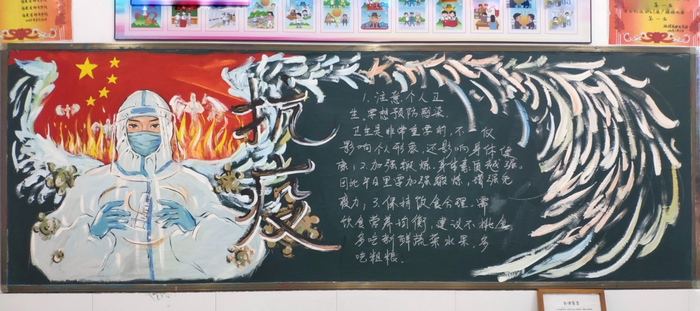 抗疫
1.注意个人卫
生,思想预防感染
卫生是非常重要的,不仅
影响个人形象,还影响身体健
康;2.加强锻炼,身体素质越强。
因此平日里要加强锻炼,增强免
疫力;3.保持饮食合理,需
饮食营养均衡,建议不挑食
多吃新鲜蔬菜水果,多
吃粗粮.
第一